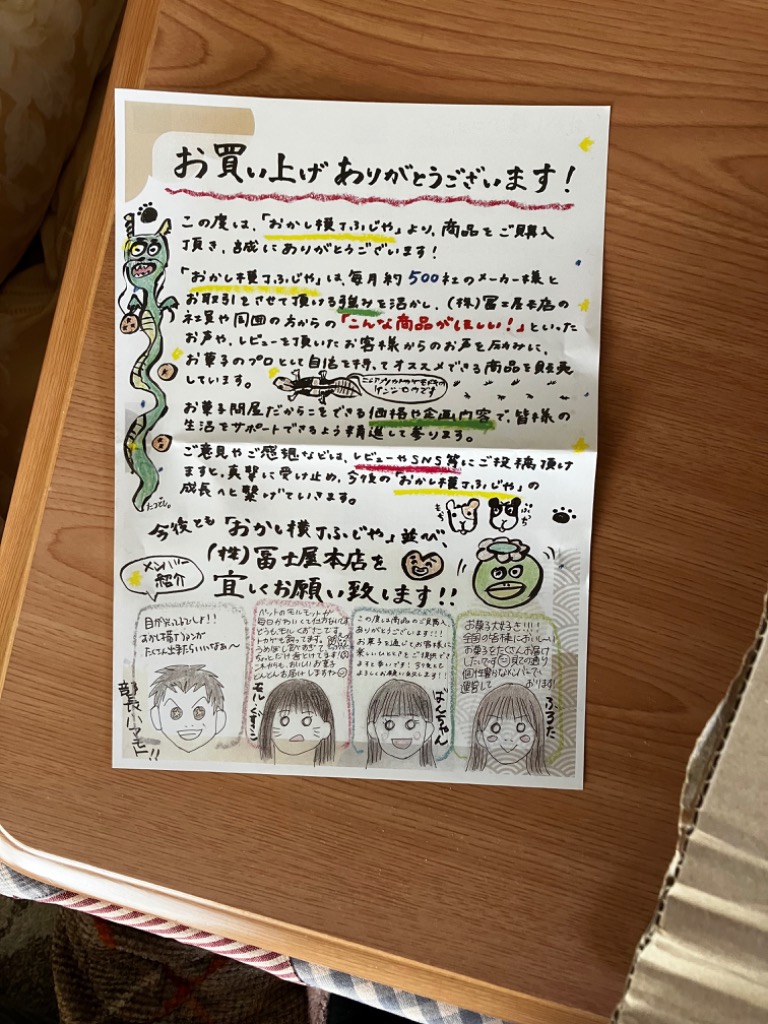 お買い上げ ありがとうございます！
この度は、「おかし横丁ふじや」より、商品をご購入
頂き、誠にありがとうございます！
「おかし横丁ふじや」は、毎月約500社のメーカー様と
お取引をさせて頂ける強みを活かし、(株)冨士屋本店の
社員や周囲の方からの「こんな商品がほしい！」といった
お声や、レビューを頂いたお客様からのお声を反映に、
お菓子のプロとして自信を持ってオススメできる商品を販売
しています。
お菓子問屋だからこそできる価格や企画内容で、皆様の
生活をサポートできるよう精進して参ります。
ご意見やご感想などは、レビューやSNS等にご投稿頂け
ますと、真摯に受け止め、今後の「おかし横丁ふじや」の
成長へと繋げていきます。
たつどし。
もち
ぶっち
今後とも「おかし横丁ふじや」並び、
(株)冨士屋本店を
宜しくお願い致します！！
メンバー
紹介
目が光ってるでしょ！！
おかし横丁ファンが
たくさん出来たらいいなぁ〜
部長ハマモト!!
ペットのモルモットが
毎日かわいくて仕方ないです
どうも、モルぐみこです。
トカゲも飼ってます。
これからも、おいしいお菓子
どんどんお届けしますね
この度は商品のご購入、
ありがとうございます!!!
お菓子を通じてお客様に
楽しいひとときをご提供でき
ますと幸いです！今後とも
よろしくお願い致します！！
ばんちゃん
お菓子大好き!!!
全国の皆様においし〜い
お菓子をたくさんお届け
したいです 見ての通り
個性豊かなメンバーで
運営して おります！
ふるた